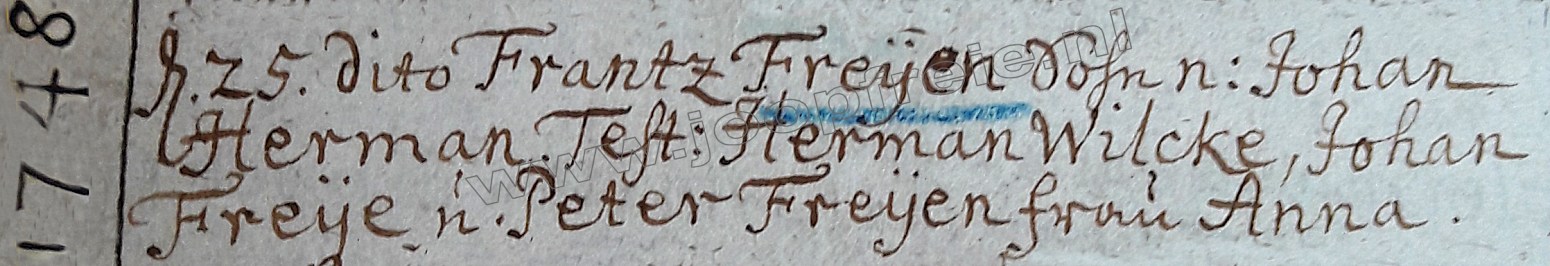 1748
h. 25. dito Frantz Freÿen Sohn n: Johan
Herman. Test: Herman Wilcke, Johan
Freÿe, ú. Peter Freÿen fraú Anna.
www.joopfreie.nl